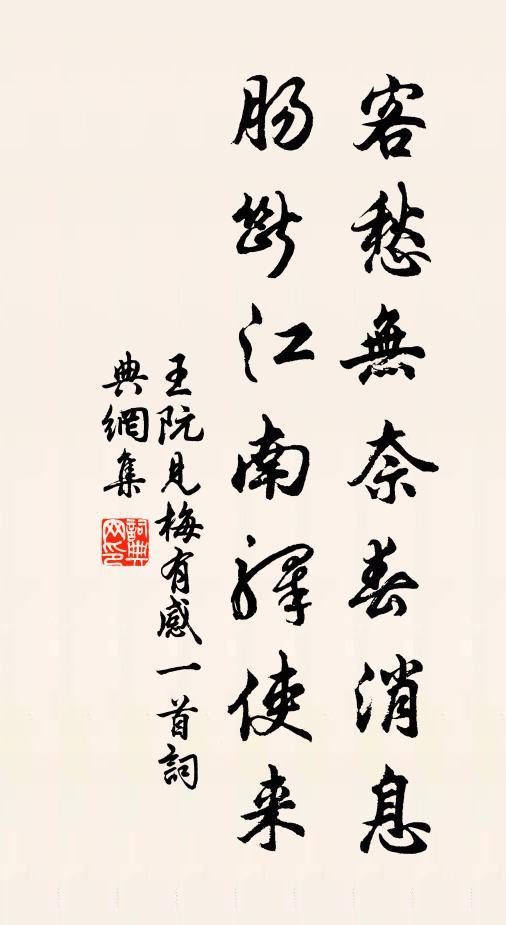 客愁無奈春消息
腸斷江南驛使来
王阮見梅有感一首詞
典網集
詞典網印